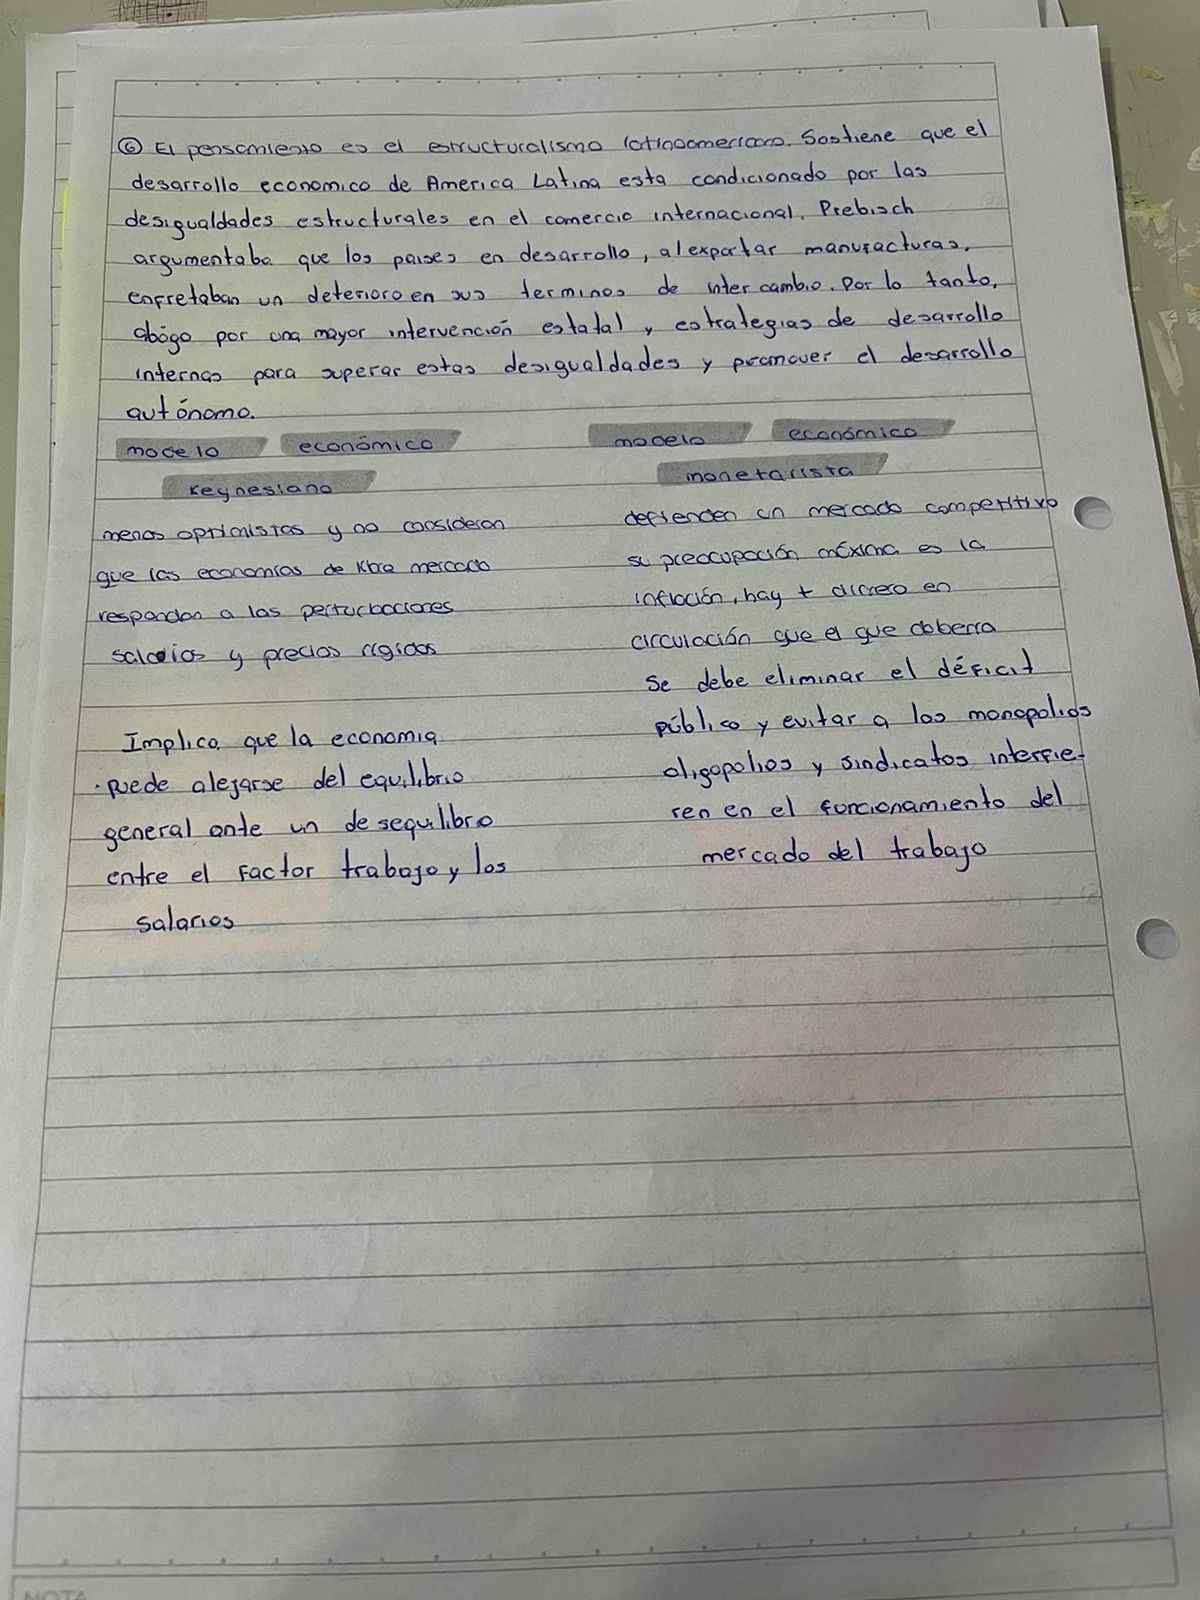 ⑥ El pensamiento es el estructuralismo latinoamericano. Sostiene que el
desarrollo economico de America Latina esta condicionado por las
desigualdades estructurales en el comercio internacional. Prebisch
argumentaba que los paises en desarrollo, al exportar manufacturas,
enfretaban un deterioro en sus terminos de intercambio. Por lo tanto,
abógo por una mayor intervención estatal y estrategias de desarrollo
internas para superar estas desigualdades y promover el desarrollo
autónomo.
modelo económico
keynesiano
menos optimistas y no consideran
que las economías de libre mercado
respondan a las perturbaciones
salarios y precios rígidos
Implica que la economia
• puede alejarse del equilibrio
general ante un desequilibro
entre el factor trabajo y los
salarios
modelo económico
monetarista
defienden un mercado competitivo
su preocupación máxima es la
inflación, hay + dinero en
circulación que el que deberia
Se debe eliminar el déficit
público y evitar q los monopolios
oligopolios y sindicatos interfie-
ren en el funcionamiento del
mercado del trabajo
NOTA